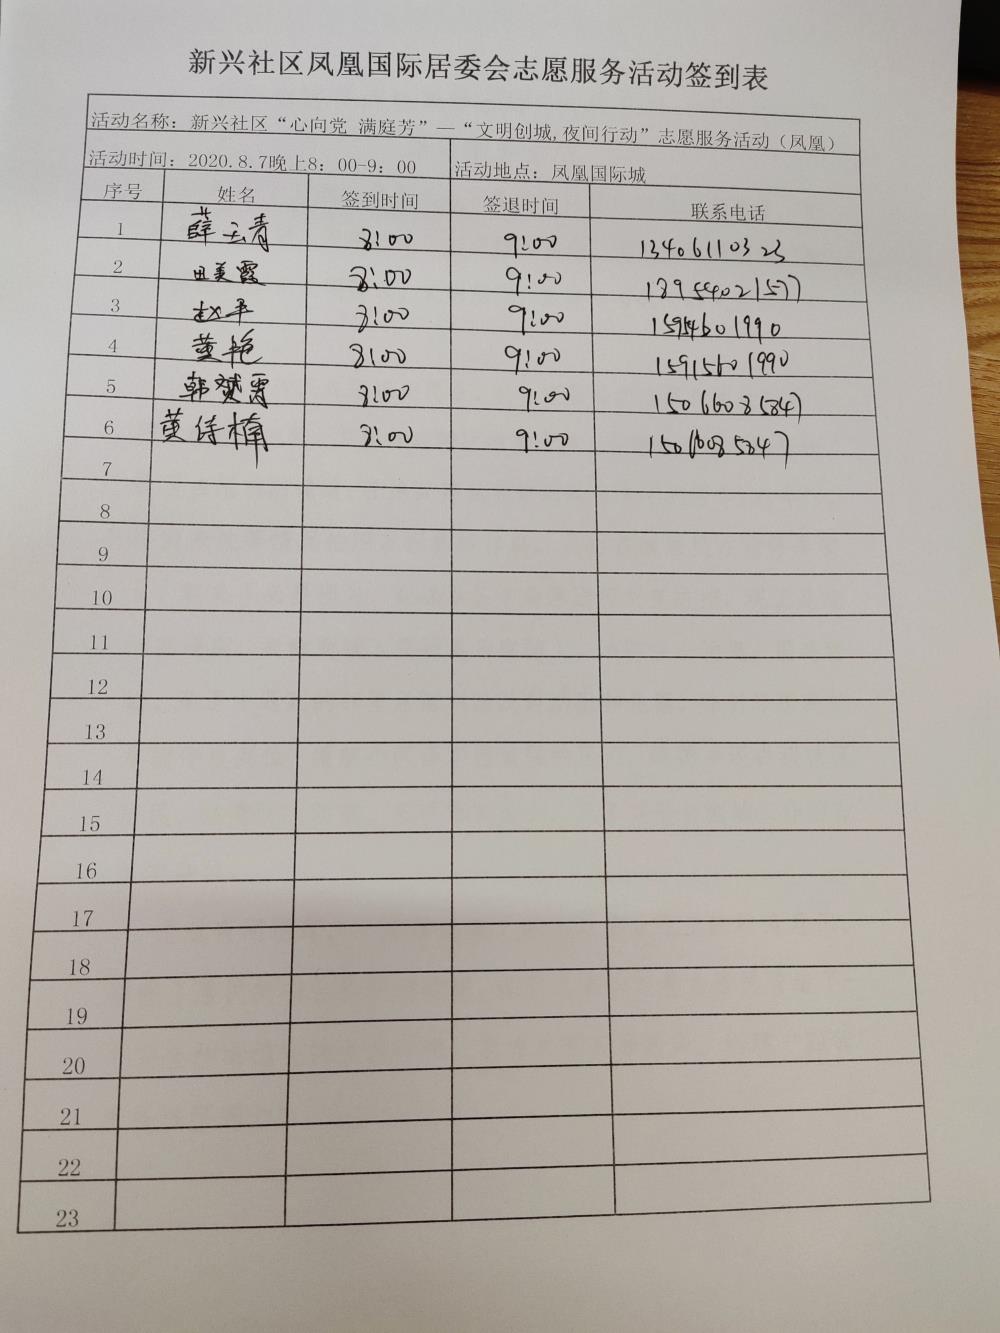 新兴社区凤凰国际居委会志愿服务活动签到表
活动名称：新兴社区“心向党 满庭芳”—“文明创城,夜间行动”志愿服务活动（凤凰）
活动时间：2020.8.7晚上8：00-9：00 活动地点：凤凰国际城
序号 姓名 签到时间 签退时间 联系电话
1 薛玉青 8:00 9:00 13406110323
2 田美霞 8:00 9:00 18954021577
3 赵平 8:00 9:00 1990
4 黄艳 8:00 9:00 15915601990
5 韩 8:00 9:00 15066085847
6 黄 楠 8:00 9:00 15066085847
7
8
9
10
11
12
13
14
15
16
17
18
19
20
21
22
23